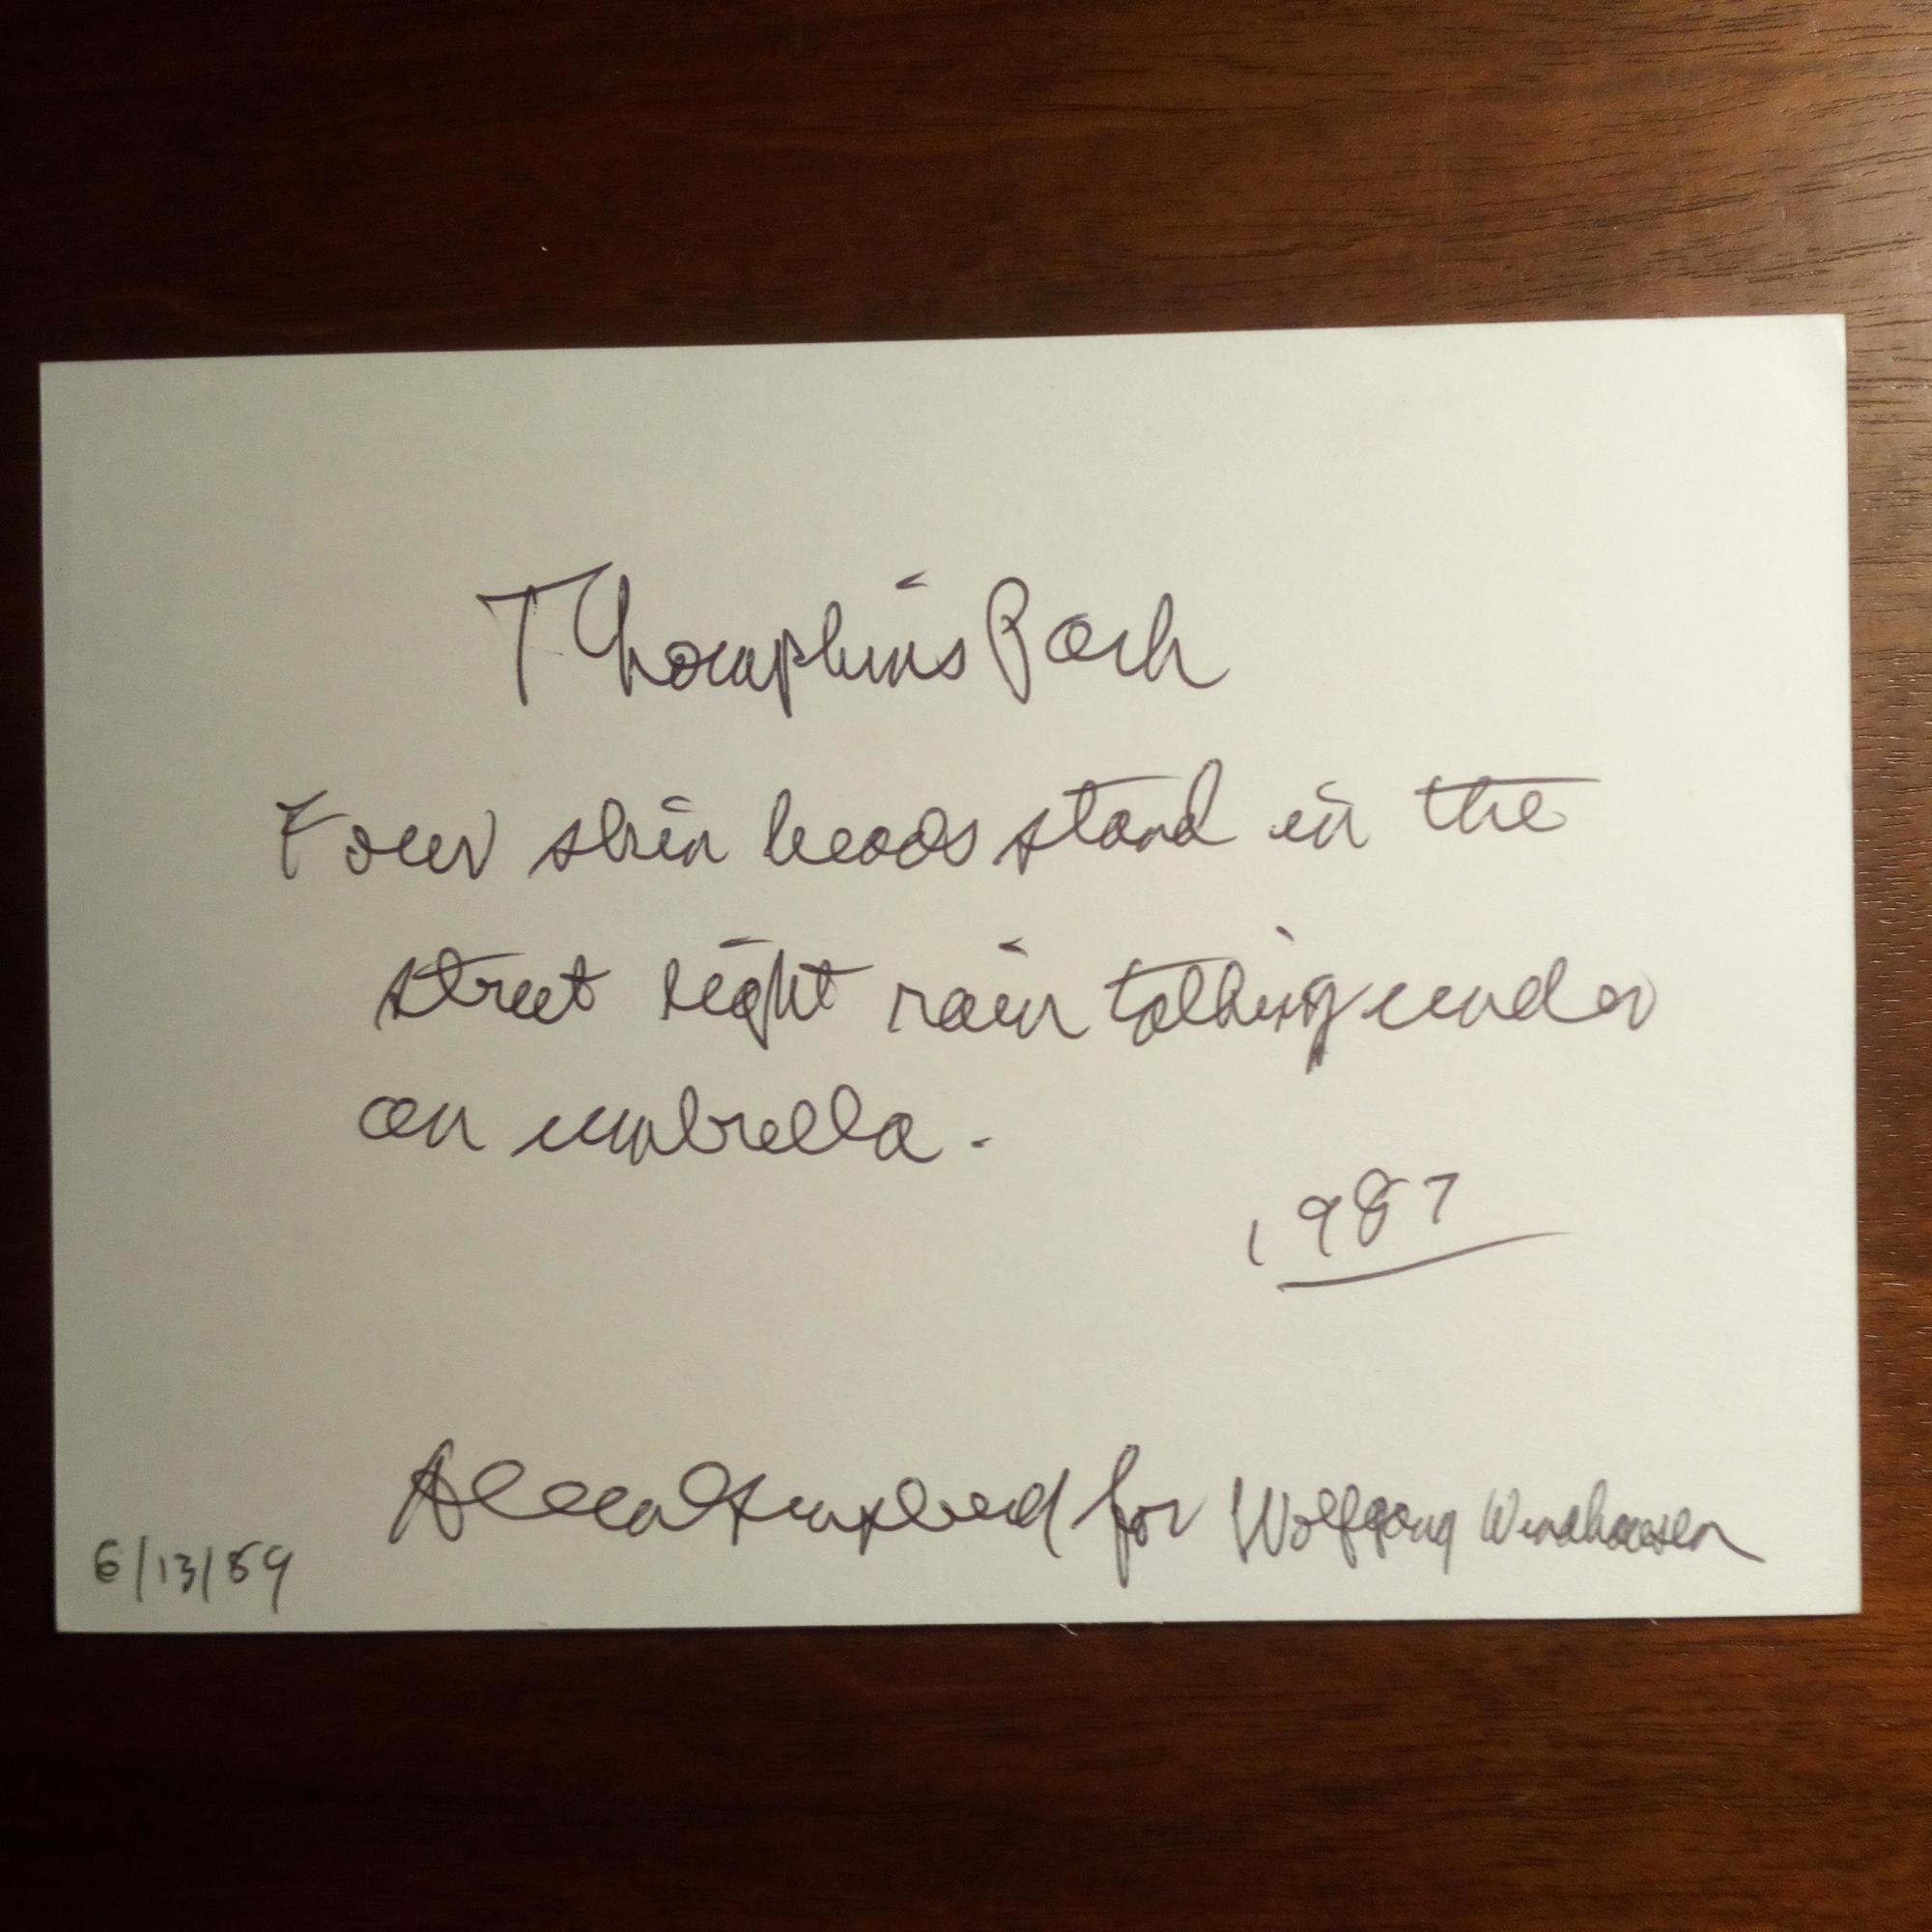 Thompkins Park
Four skin heads stand in the
street light rain talking under
an umbrella.
1987
Allen Ginsberg for Wolfgang Windhausen
6/13/89